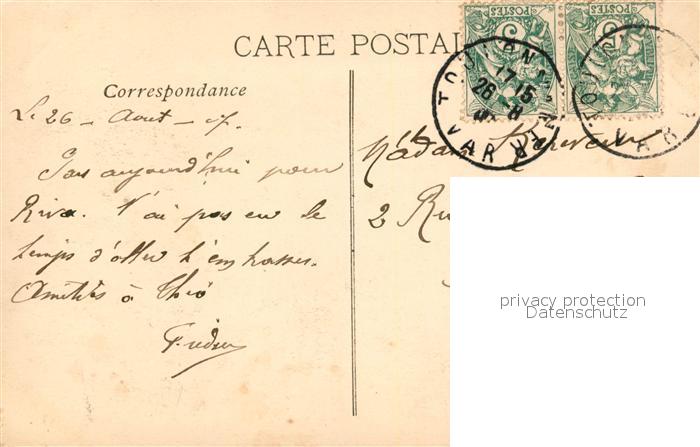 CARTE POSTAL
Correspondance
Le 26 - Aout - 07.
Pars aujourd'hui pour
Riva. N'ai pas eu le
temps d'aller t'embrasser.
Amitiés à Théo
POSTES
POSTES
TOULON
17 15
26 8
VAR
VAR
Madame
2 Ru
privacy protection
Datenschutz